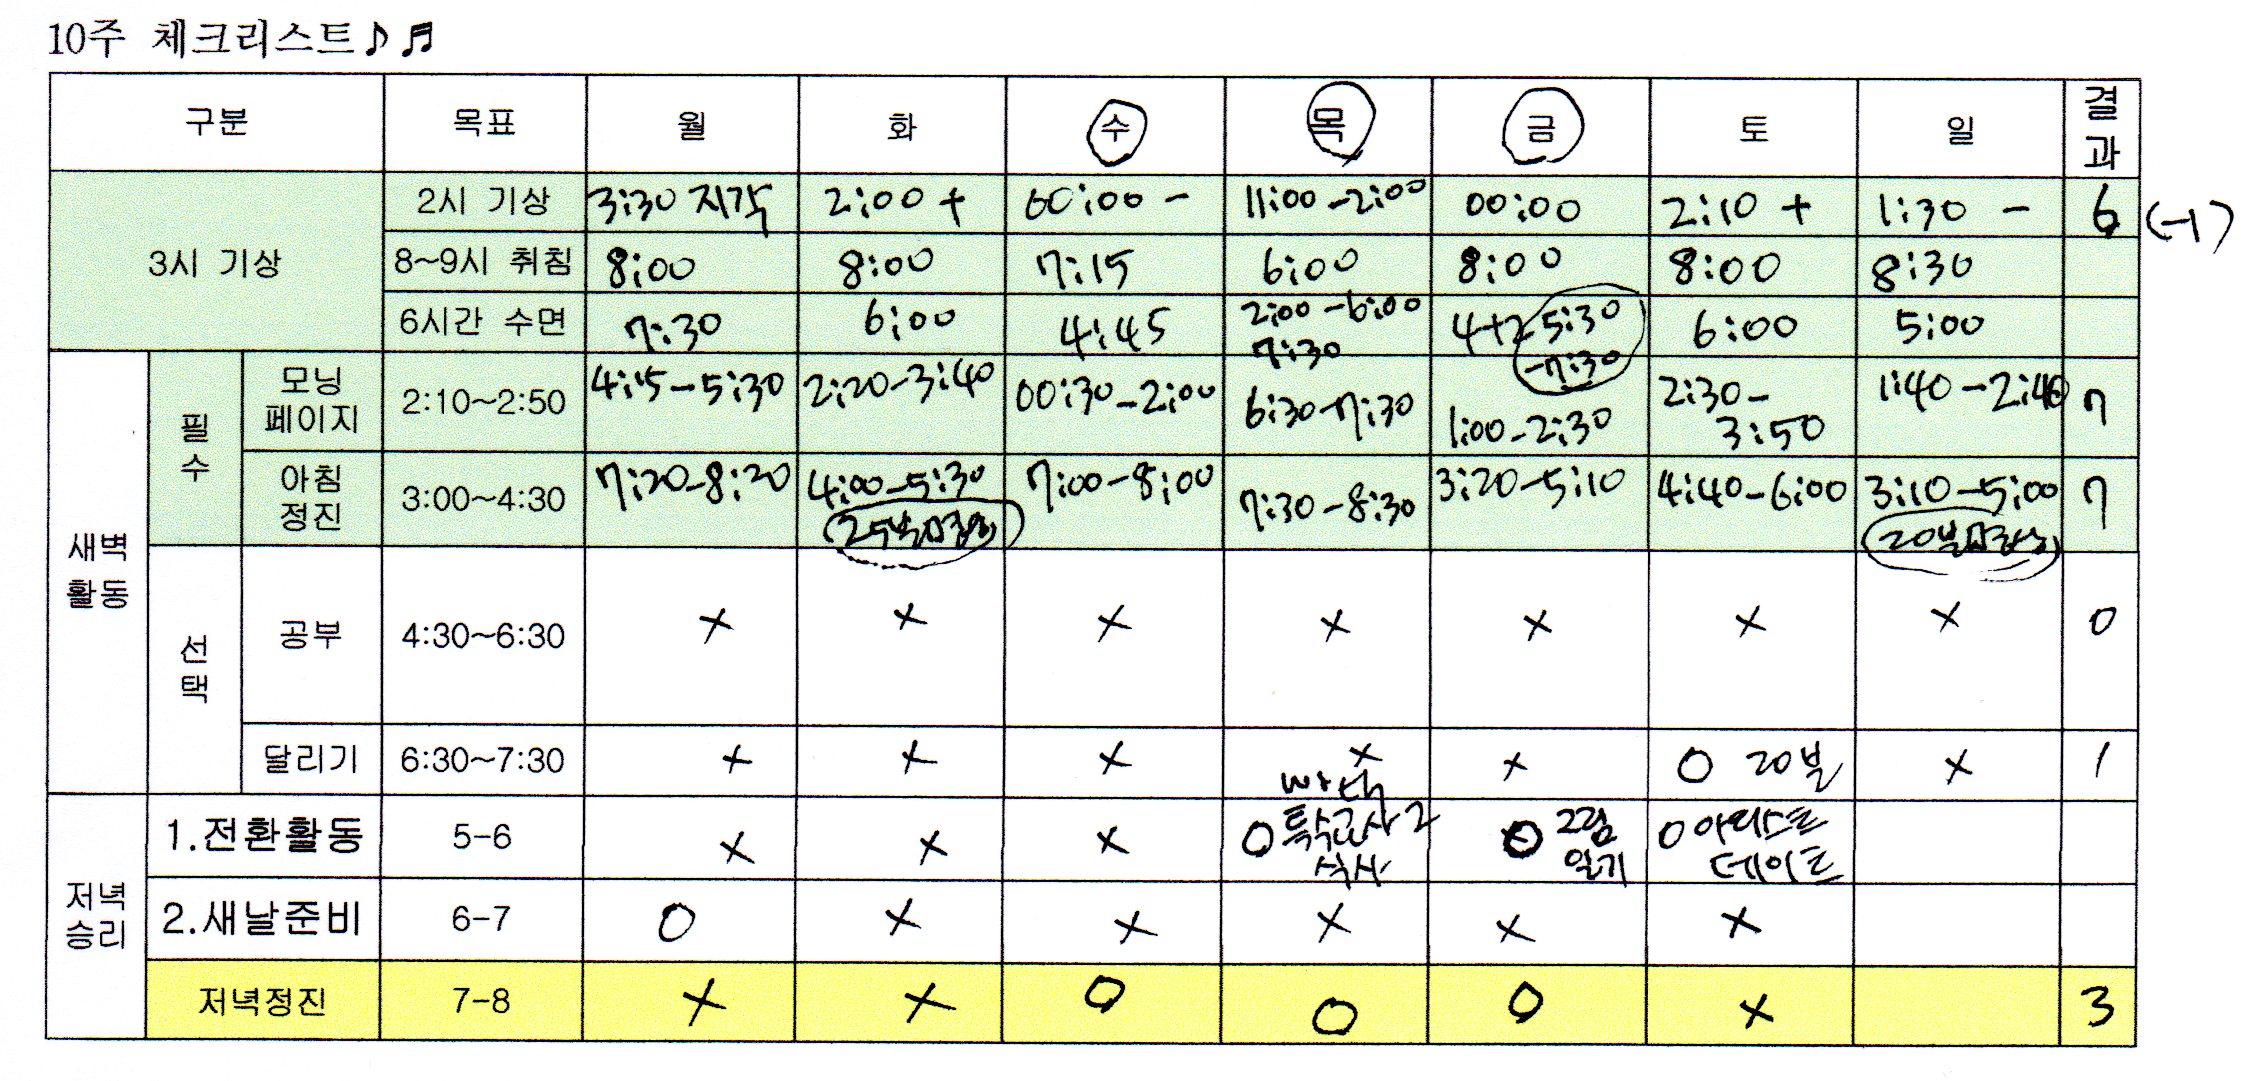 10주 체크리스트♪♬
구분 목표 월 화 수 목 금 토 일 결과
3시 기상
2시 기상 3:30 지각 2:00 + 00:00 - 11:00-2:00 00:00 2:10 + 1:30 - 6 (-1)
8~9시 취침 8:00 8:00 7:15 6:00 8:00 8:00 8:30
6시간 수면 7:30 6:00 4:45 2:00-6:00 7:30 4+2 5:30-7:30 6:00 5:00
새벽 활동
필수
모닝 페이지 2:10~2:50 4:15-5:30 2:20-3:40 00:30-2:00 6:30-7:30 1:00-2:30 2:30-3:50 1:40-2:40 7
아침 정진 3:00~4:30 7:20-8:20 4:00-5:30 7:00-8:00 7:30-8:30 3:20-5:10 4:40-6:00 3:10-5:00 7
선택
공부 4:30~6:30 × × × × × × × 0
달리기 6:30~7:30 × × × × × O 20분 × 1
저녁 승리
1.전환활동 5-6 × × × O 특수교사 식사 O 그림 일기 O 아티스트 데이트
2.새날준비 6-7 O × × × × ×
저녁정진 7-8 × × O O O × 3